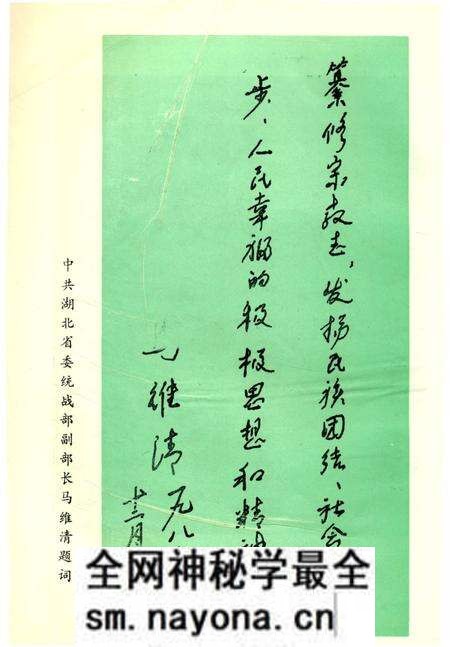 纂修宗教志，发扬民族团结、社会
步、人民幸福的积极思想和精神
马维清 一九八
十二月
中共湖北省委统战部副部长马维清题词
全网神秘学最全
sm.nayona.cn